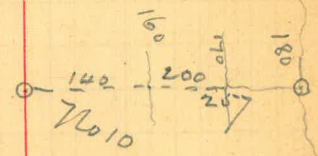 160
190
180
140
200
257
No 10